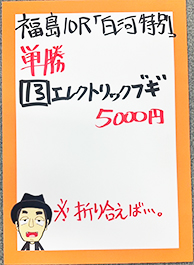 福島10R「白河特別」
単勝
13 エレクトリックブギ
5000円
※折り合えば…。